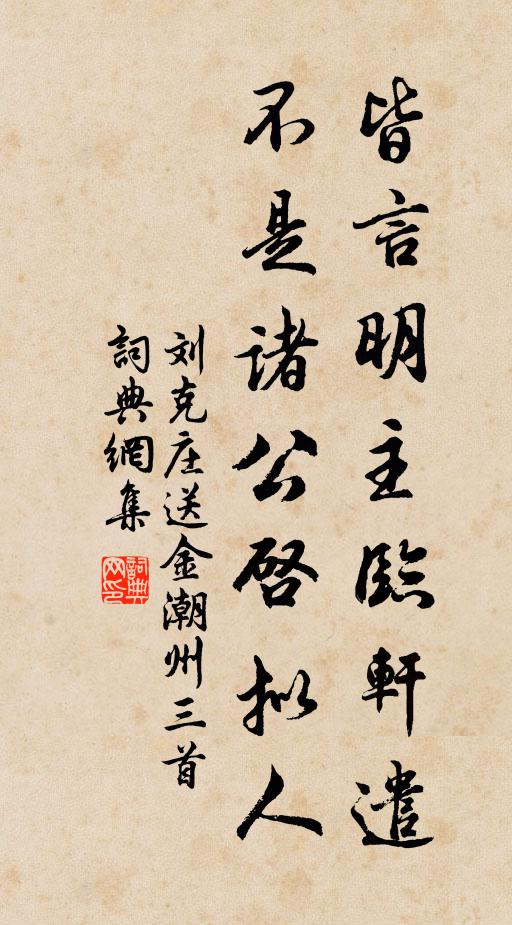 皆言明主臨軒遣
不是诸公啓拟人
刘克庄送金潮州三首
詞典網集
詞典网印